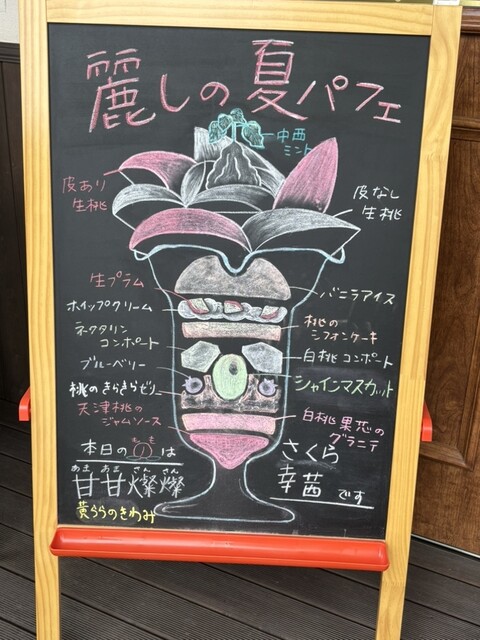 麗しの夏パフェ
中西
ミント
皮あり
生桃
皮なし
生桃
生プラム
バニラアイス
ホイップクリーム
桃の
シフォンケーキ
ネクタリン
コンポート
白桃コンポート
ブルーベリー
シャインマスカット
桃のきらきらゼリー
天津桃の
ジャムソース
白桃果恋の
グラニテ
本日の
もも
は
あま あま さん さん
甘甘燦燦
黄ららのきわみ
さくら
幸茜です